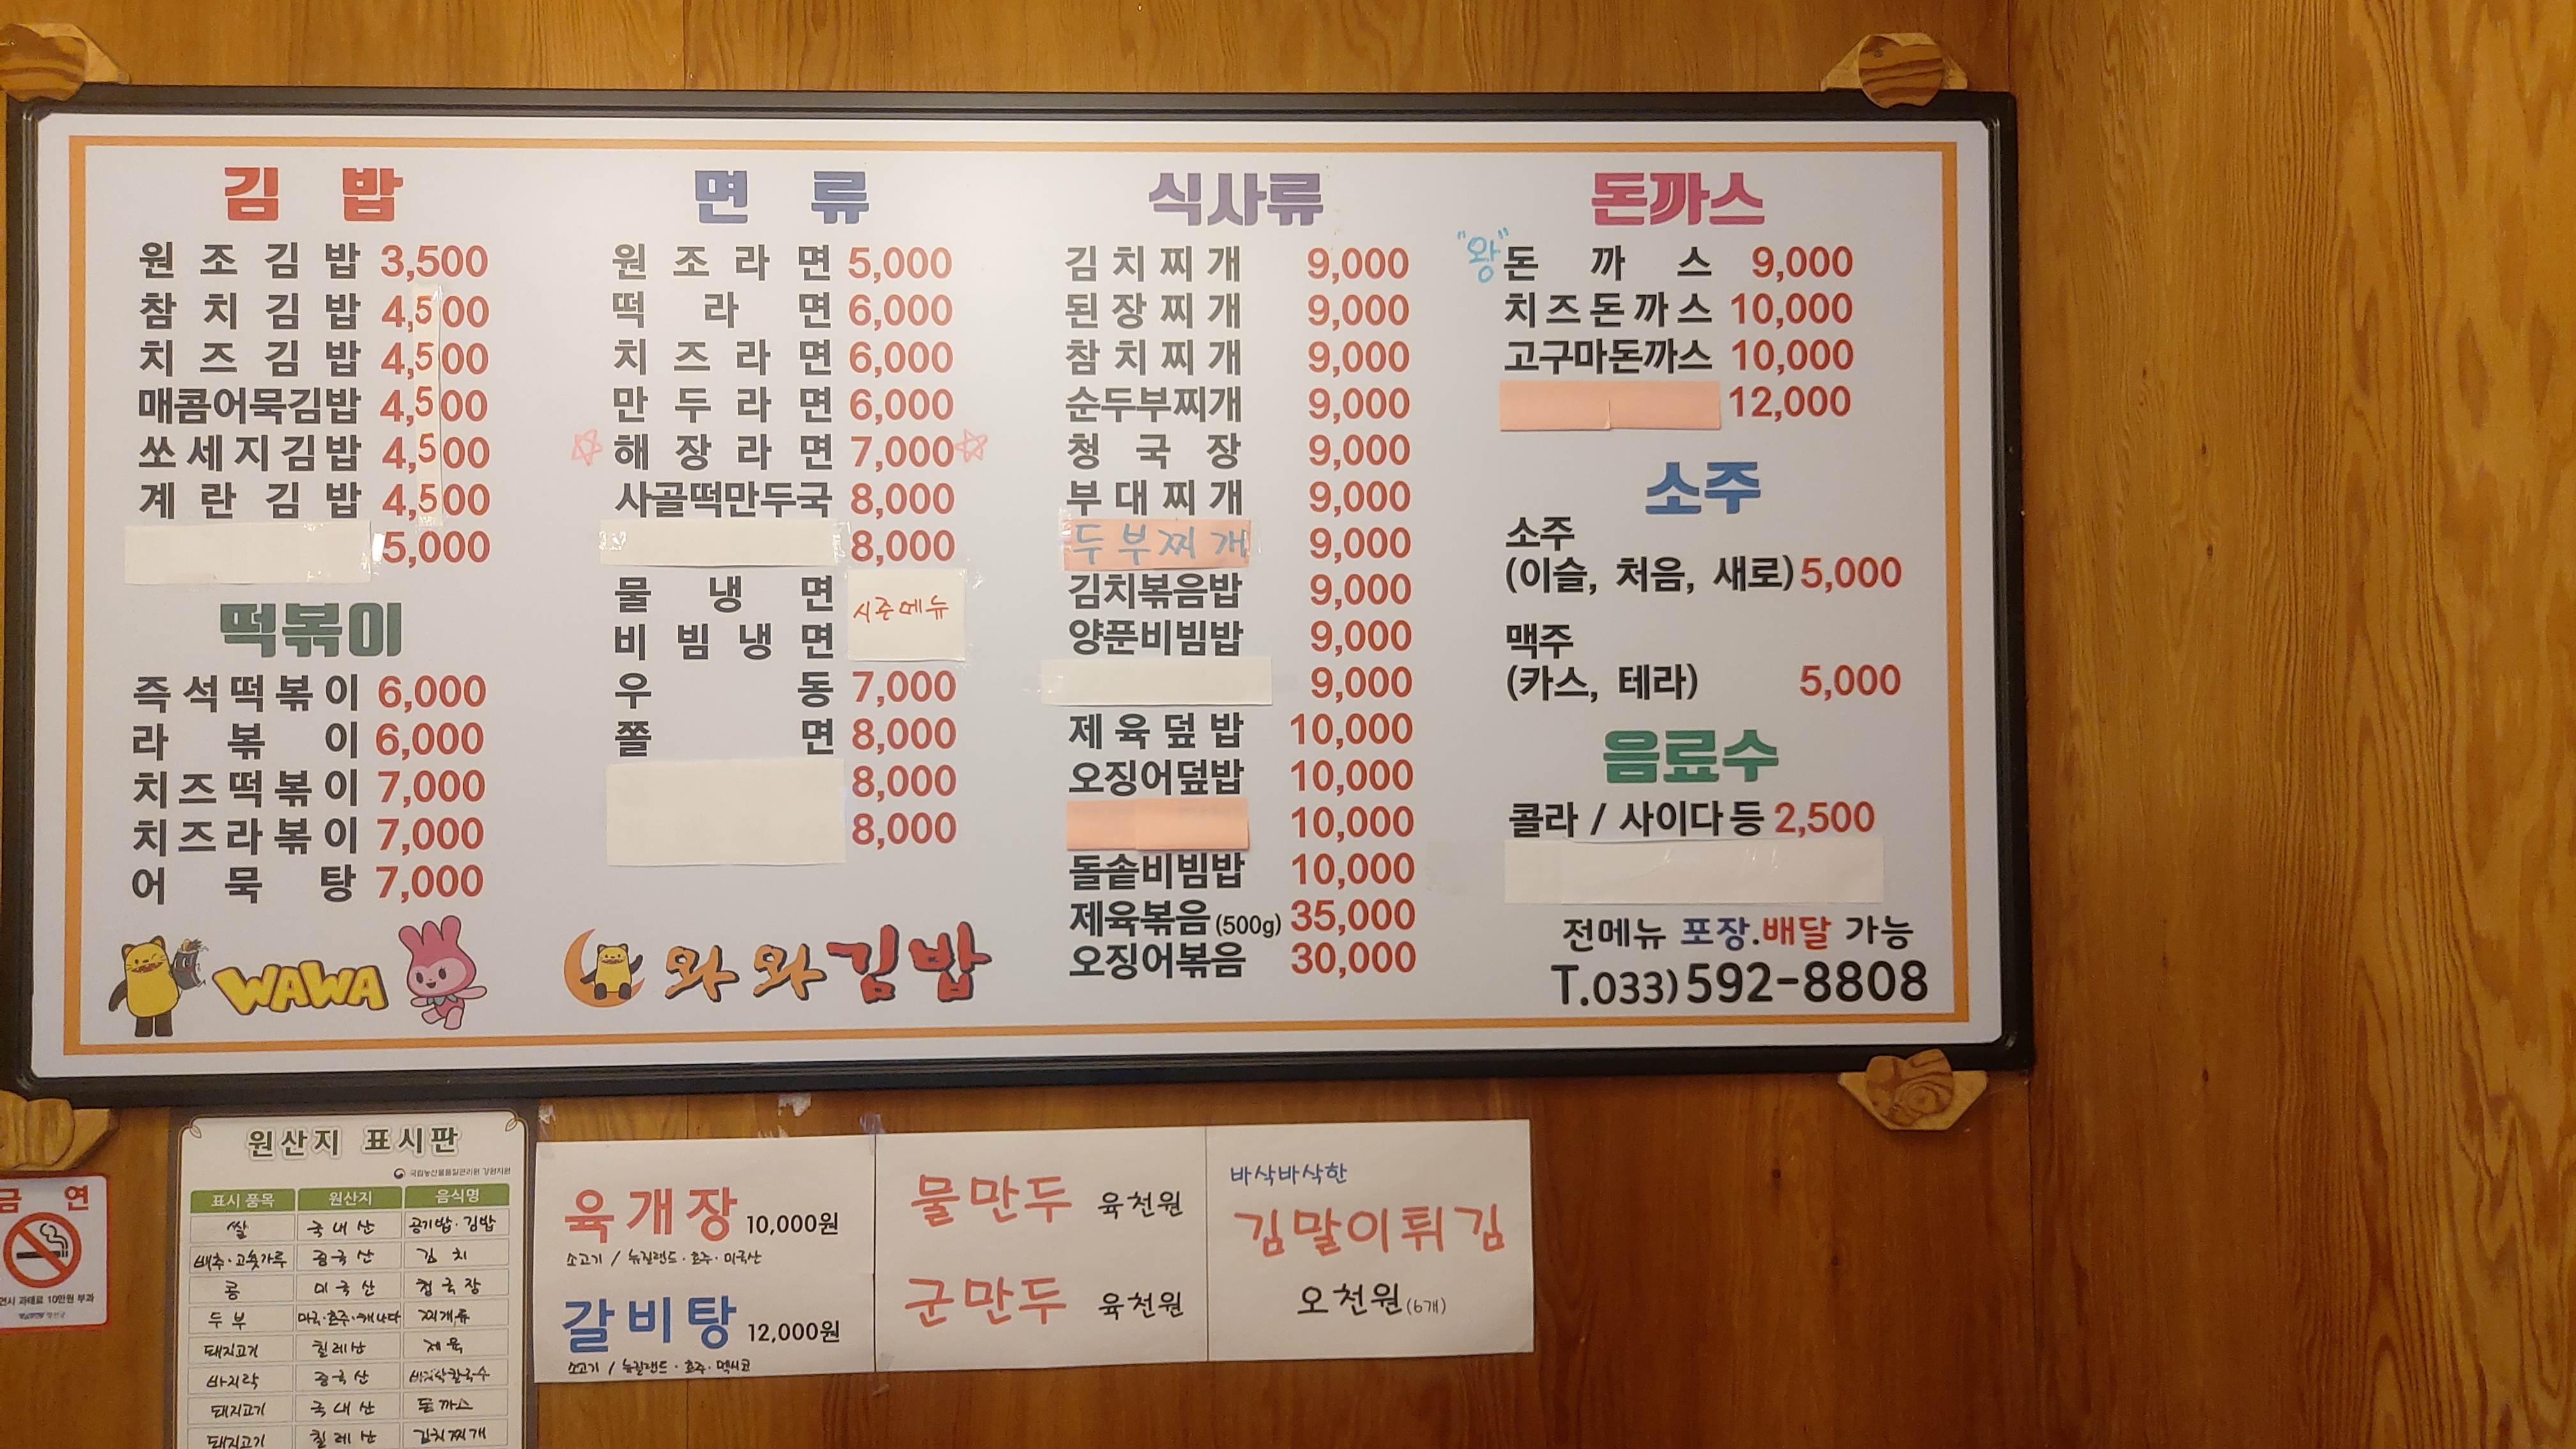 김 밥
원조김밥 3,500
참치김밥 4,500
치즈김밥 4,500
매콤어묵김밥 4,500
쏘세지김밥 4,500
계란김밥 4,500
5,000
떡볶이
즉석떡볶이 6,000
라볶이 6,000
치즈떡볶이 7,000
치즈라볶이 7,000
어묵탕 7,000
WAWA
면 류
원조라면 5,000
떡라면 6,000
치즈라면 6,000
만두라면 6,000
해장라면 7,000
사골떡만두국 8,000
8,000
물냉면
시즌메뉴
비빔냉면
우동 7,000
쫄면 8,000
8,000
8,000
와와김밥
식사류
김치찌개 9,000
된장찌개 9,000
참치찌개 9,000
순두부찌개 9,000
청국장 9,000
부대찌개 9,000
두부찌개 9,000
김치볶음밥 9,000
양푼비빔밥 9,000
9,000
제육덮밥 10,000
오징어덮밥 10,000
10,000
돌솥비빔밥 10,000
제육볶음(500g) 35,000
오징어볶음 30,000
돈까스
"왕"돈까스 9,000
치즈돈까스 10,000
고구마돈까스 10,000
12,000
소주
소주
(이슬, 처음, 새로) 5,000
맥주
(카스, 테라) 5,000
음료수
콜라 / 사이다 등 2,500
전메뉴 포장.배달 가능
T.033)592-8808
금 연
면시 과태료 10만원 부과
원산지 표시판
국립농산물품질관리원 강원지원
표시 품목 원산지 음식명
쌀 국내산 공기밥·김밥
배추·고춧가루 중국산 김치
콩 미국산 청국장
두부 미국·호주·캐나다 찌개류
돼지고기 칠레산 제육
바지락 중국산 바지락칼국수
돼지고기 국내산 돈까스
돼지고기 칠레산 김치찌개
육개장 10,000원
소고기 / 뉴질랜드·호주·미국산
갈비탕 12,000원
소고기 / 뉴질랜드·호주·멕시코
물만두 육천원
군만두 육천원
바삭바삭한
김말이튀김
오천원(6개)